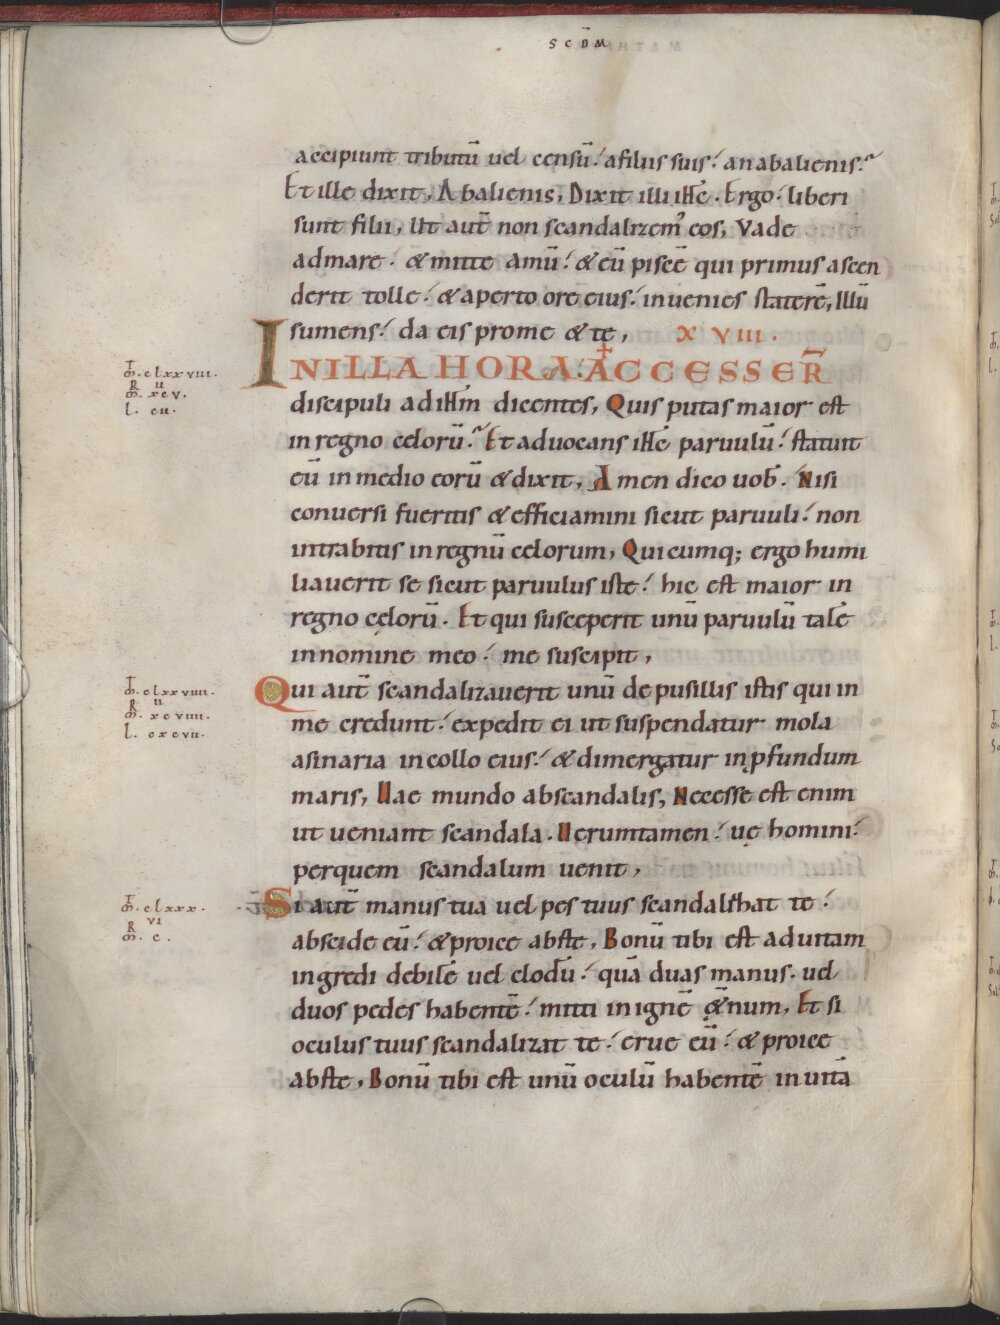 SCDM̄
accipiunt tributū uel censū. afiliis suis. an abalienis.
Et ille dixit, Abalienis, Dixit illi ihs̄. Ergo liberi
sunt filii, Ut aut̄ non scandalizem' eos, Vade
admare. & mitte amū. & eū piscē qui primus ascen
derit tolle. & aperto ore eius. inuenies staterē, Illū
sumens. da eis pro me & te, XVIII.
IN ILLA HORA. ACCESSER̄
discipuli ad ihm̄ dicentes, Quis putas maior est
in regno celorū. Et aduocans ihs̄ paruulū. statuit
eū in medio eorū & dixit, Amen dico uob̄. Nisi
conuersi fueritis & efficiamini sicut paruuli. non
intrabitis in regnū celorum, Quicumq; ergo humi
liauerit se sicut paruulus iste. hic est maior in
regno cęlorū. Et qui susceperit unū paruulū talē
in nomine meo. me suscipit,
Qui aut̄ scandalizauerit unū de pusillis istis qui in
me credunt. expedit ei ut suspendatur mola
asinaria in collo eius. & dimergatur in p̱fundum
maris, Uae mundo abscandalis, Necesse est enim
ut ueniant scandala. Uerumtamen. uę homini.
per quem scandalum uenit,
Si aut̄ manus tua uel pes tuus scandalizat te.
abscide eū. & proice abs te, Bonū tibi est ad uitam
ingredi debilē uel clodū. quā duas manus. uel
duos pedes habentē. mitti in ignē &̨num, Et si
oculus tuus scandalizat te. erue eū. & proice
abs te, Bonū tibi est unū oculū habentē in uitā
m̄. clxxviii.
R ii
m̄. xcv.
l. cii.
m̄. clxxviiii.
R ii
m̄. xcviiii.
l. cxcvii.
m̄. clxxx.
R vi
m̄. c.